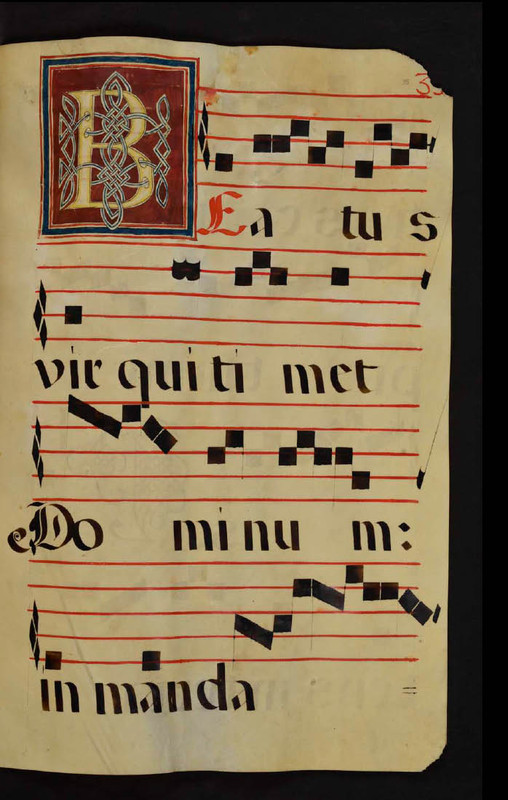 BEa tu s
vir qui ti met
Do minu m:
in manda =